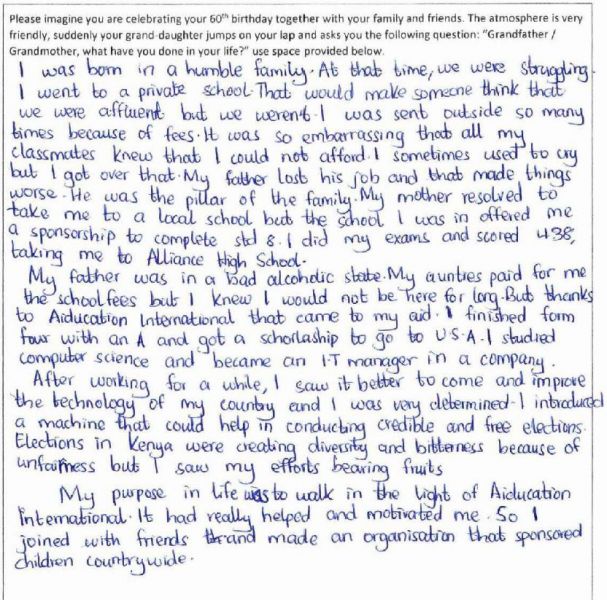 Please imagine you are celebrating your 60th birthday together with your family and friends. The atmosphere is very
friendly, suddenly your grand-daughter jumps on your lap and asks you the following question: "Grandfather /
Grandmother, what have you done in your life?" use space provided below.
I was born in a humble family. At that time, we were struggling.
I went to a private school. That would make someone think that
we were affluent but we weren't. I was sent outside so many
times because of fees. It was so embarrassing that all my
classmates knew that I could not afford. I sometimes used to cry
but I got over that. My father lost his job and that made things
worse. He was the pillar of the family. My mother resolved to
take me to a local school but the school I was in offered me
a sponsorship to complete std 8. I did my exams and scored 438,
taking me to Alliance High School.
My father was in a bad alcoholic state. My aunties paid for me
the school fees but I knew I would not be here for long. But thanks
to Aiducation International that came to my aid. I finished form
four with an A and got a schorlaship to go to U.S.A. I studied
computer science and became an I.T manager in a company.
After working for a while, I saw it better to come and improve
the technology of my country and I was very determined. I introduced
a machine that could help in conducting credible and free elections.
Elections in Kenya were creating diversity and bitterness because of
unfairness but I saw my efforts bearing fruits
My purpose in life was to walk in the light of Aiducation
International. It had really helped and motivated me. So I
joined with friends and made an organisation that sponsored
children countrywide.